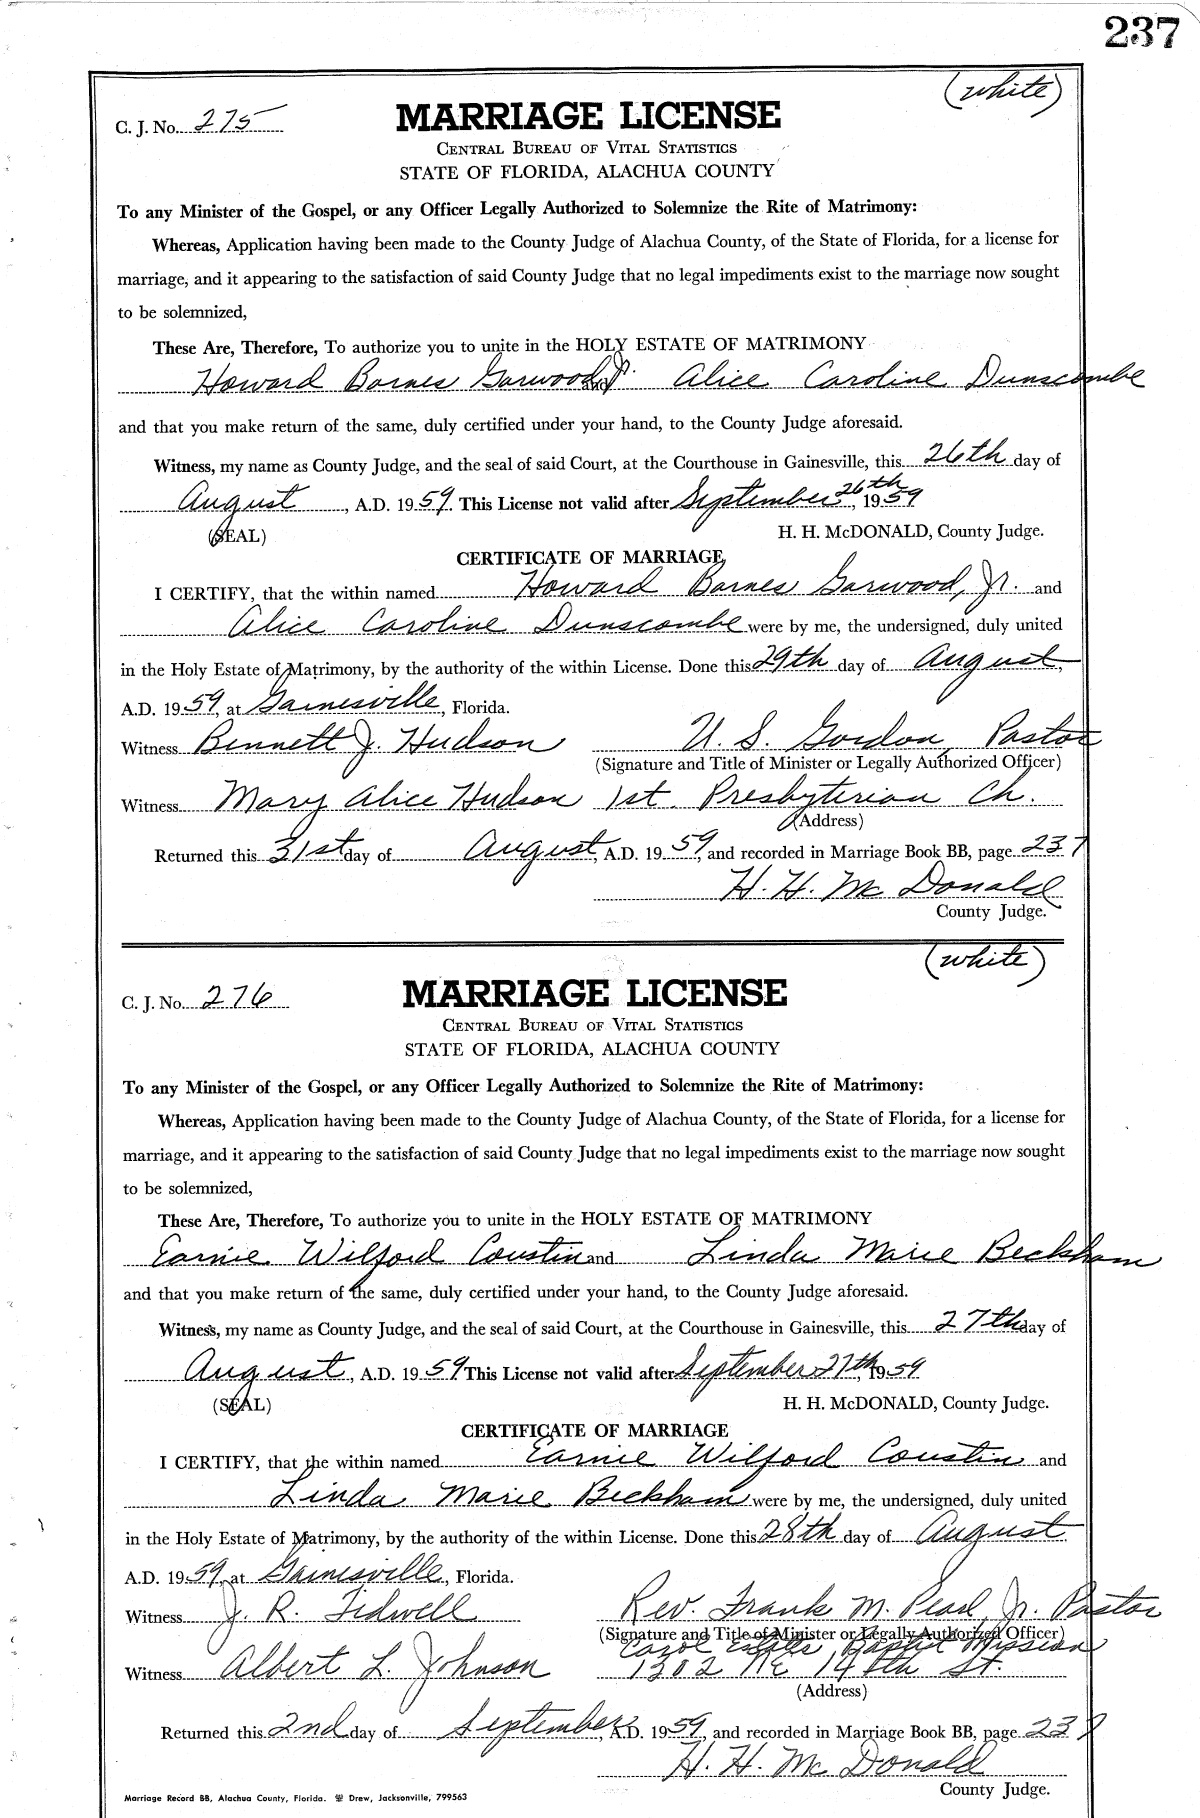 237
(white)
C. J. No. 275
MARRIAGE LICENSE
CENTRAL BUREAU OF VITAL STATISTICS
STATE OF FLORIDA, ALACHUA COUNTY
To any Minister of the Gospel, or any Officer Legally Authorized to Solemnize the Rite of Matrimony:
Whereas, Application having been made to the County Judge of Alachua County, of the State of Florida, for a license for
marriage, and it appearing to the satisfaction of said County Judge that no legal impediments exist to the marriage now sought
to be solemnized,
These Are, Therefore, To authorize you to unite in the HOLY ESTATE OF MATRIMONY
Howard Barnes Garwood Jr. and Alice Caroline Dunscombe
and that you make return of the same, duly certified under your hand, to the County Judge aforesaid.
Witness, my name as County Judge, and the seal of said Court, at the Courthouse in Gainesville, this 26th day of
August, A.D. 1959. This License not valid after September 26th, 1959
(SEAL) H. H. McDONALD, County Judge.
CERTIFICATE OF MARRIAGE
I CERTIFY, that the within named Howard Barnes Garwood, Jr. and
Alice Caroline Dunscombe were by me, the undersigned, duly united
in the Holy Estate of Matrimony, by the authority of the within License. Done this 29th day of August,
A.D. 1959, at Gainesville, Florida.
Witness Bennett J. Hudson U. S. Gordon, Pastor
(Signature and Title of Minister or Legally Authorized Officer)
Witness Mary Alice Hudson 1st. Presbyterian Ch.
(Address)
Returned this 31st day of August, A.D. 1959, and recorded in Marriage Book BB, page 237
H. H. McDonald
County Judge.
(white)
C. J. No. 276
MARRIAGE LICENSE
CENTRAL BUREAU OF VITAL STATISTICS
STATE OF FLORIDA, ALACHUA COUNTY
To any Minister of the Gospel, or any Officer Legally Authorized to Solemnize the Rite of Matrimony:
Whereas, Application having been made to the County Judge of Alachua County, of the State of Florida, for a license for
marriage, and it appearing to the satisfaction of said County Judge that no legal impediments exist to the marriage now sought
to be solemnized,
These Are, Therefore, To authorize you to unite in the HOLY ESTATE OF MATRIMONY
Earnie Wilford Coustin and Linda Marie Beckham
and that you make return of the same, duly certified under your hand, to the County Judge aforesaid.
Witness, my name as County Judge, and the seal of said Court, at the Courthouse in Gainesville, this 27th day of
August, A.D. 1959 This License not valid after September 27th, 1959
(SEAL) H. H. McDONALD, County Judge.
CERTIFICATE OF MARRIAGE
I CERTIFY, that the within named Earnie Wilford Coustin and
Linda Marie Beckham were by me, the undersigned, duly united
in the Holy Estate of Matrimony, by the authority of the within License. Done this 28th day of August
A.D. 1959, at Gainesville, Florida.
Witness J. R. Tidwell Rev. Frank M. Pearl, Jr. Pastor
(Signature and Title of Minister or Legally Authorized Officer)
Carol Estates Baptist Mission
Witness Albert L. Johnson 1302 NE 14th St.
(Address)
Returned this 2nd day of September, A.D. 1959, and recorded in Marriage Book BB, page 237
H. H. McDonald
County Judge.
Marriage Record BB, Alachua County, Florida. Drew, Jacksonville, 799563